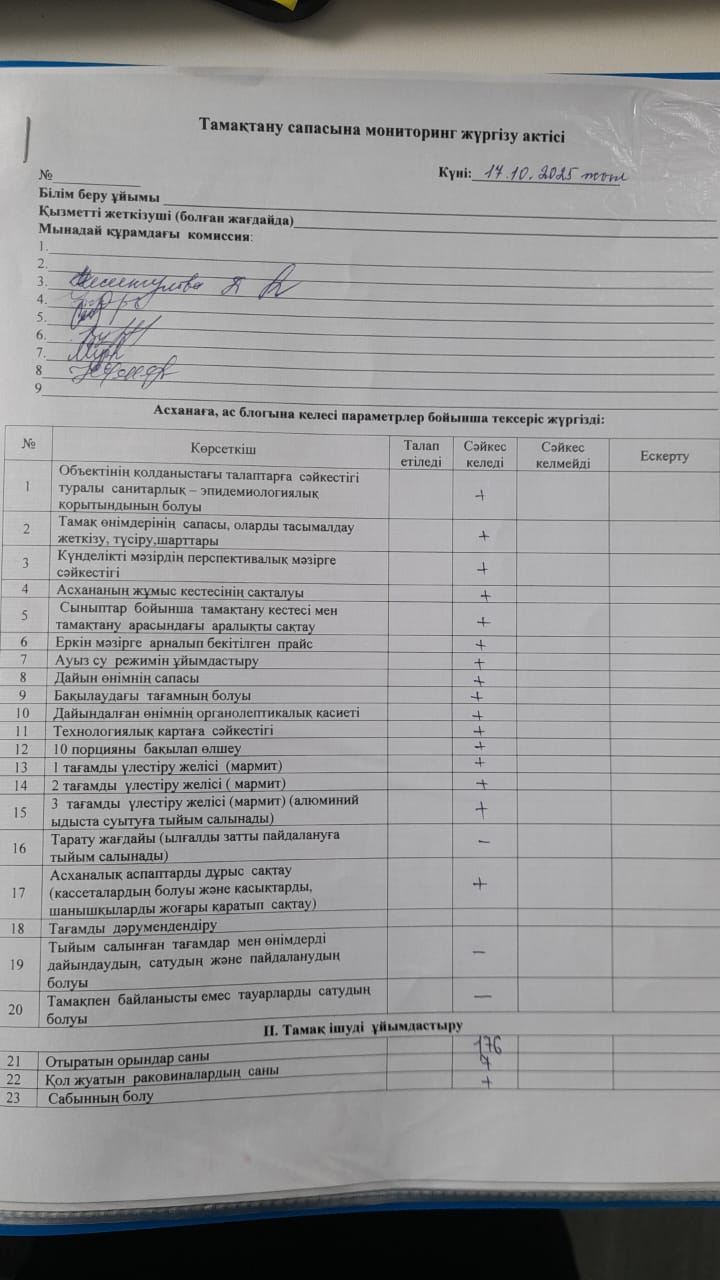 Тамақтану сапасына мониторинг жүргізу актісі
№ Күні: 17.10.2025
Білім беру ұйымы
Қызметті жеткізуші (болған жағдайда)
Мынадай құрамдағы комиссия:
1.
2.
3.
4.
5.
6.
7.
8
9
Асханаға, ас блогына келесі параметрлер бойынша тексеріс жүргізді:
№ Көрсеткіш Талап етіледі Сәйкес келеді Сәйкес келмейді Ескерту
1 Объектінің қолданыстағы талаптарға сәйкестігі
туралы санитарлық – эпидемиологиялық +
қорытындының болуы
2 Тамақ өнімдерінің сапасы, оларды тасымалдау
жеткізу, түсіру,шарттары +
3 Күнделікті мәзірдің перспективалық мәзірге
сәйкестігі +
4 Асхананың жұмыс кестесінің сақталуы +
5 Сыныптар бойынша тамақтану кестесі мен
тамақтану арасындағы аралықты сақтау +
6 Еркін мәзірге арналып бекітілген прайс +
7 Ауыз су режимін ұйымдастыру +
8 Дайын өнімнің сапасы +
9 Бақылаудағы тағамның болуы +
10 Дайындалған өнімнің органолептикалық қасиеті +
11 Технологиялық картаға сәйкестігі +
12 10 порцияны бақылап өлшеу +
13 1 тағамды үлестіру желісі (мармит) +
14 2 тағамды үлестіру желісі ( мармит) +
15 3 тағамды үлестіру желісі (мармит) (алюминий
ыдыста суытуға тыйым салынады) +
16 Тарату жағдайы (ылғалды затты пайдалануға
тыйым салынады) –
17 Асханалық аспаптарды дұрыс сақтау
(кассеталардың болуы және қасықтарды, +
шанышқыларды жоғары қаратып сақтау)
18 Тағамды дәрумендендіру
19 Тыйым салынған тағамдар мен өнімдерді
дайындаудың, сатудың және пайдаланудың –
болуы
20 Тамақпен байланысты емес тауарларды сатудың
болуы –
II. Тамақ ішуді ұйымдастыру
21 Отыратын орындар саны 176
22 Қол жуатын раковиналардың саны 7
23 Сабынның болу +